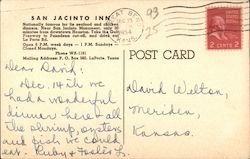 SAN JACINTO INN
Nationally famous for its seafood and chicken
dinners. Near San Jacinto Monument, only 30
minutes from downtown Houston. Take the Gulf
Freeway to Pasadena cut-off, and drive out
La Porte Rd.
Open 6 P.M. week days - 1 P.M. Sundays.
Closed Mondays.
Phone
Mailing Address: P. O. Box 540, LaPorte, Texas
93
25
2 CENTS 2
POST CARD
Dear David:
Dec. 14th we
had a wonderful
dinner here all
the shrimp, oysters
and fish we could
eat. Ruby & Foster L.
David Wilton,
Meriden,
Kansas.